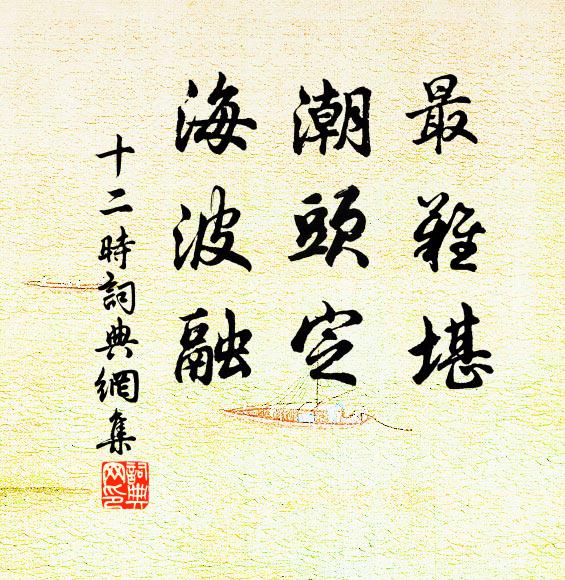 最難堪
潮頭定
海波融
十二時詞典網集
詞典网印